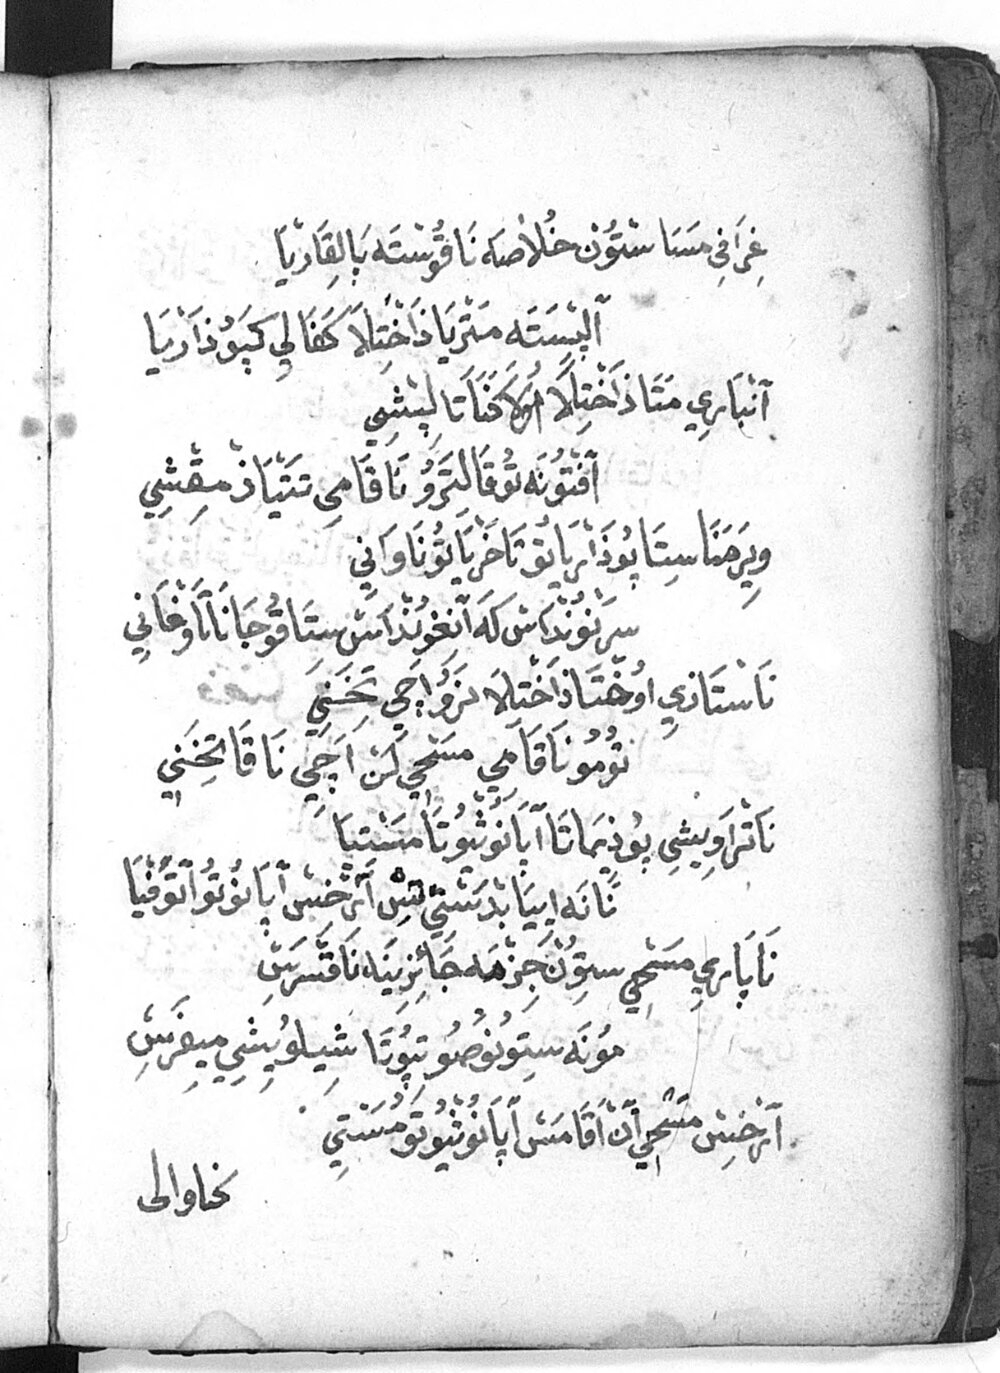 غِرَافِي مَسَا سْتُونْ خُلَاصَه نَاقُوسْتَه پَالِقَارْيَا
آلِپْسَتَه مَتْرِيَا ذَاخْتِلَا كَفَالِي كَپَوُذَارْيَا
آنْبَارِي مَتَا ذَاخْتِلَا اُولَا كَفَنَاتَا لِپِشِي
آفْتُونَه تُوقَالَتَرَوُ نَاقَامِي تَتْيَاذْ مِقِشِي
وِيرَمَنَا سِتَا پُوذَارْيَا تُوتَاخَرْيَا تُونَاوَانِي
سِرَنُونْدَاسْ كَه آنْغُونْدَاسْ سِتَا قُوجَانَا نَاوْغَانِي
نَاسْتَازِي اوُخْتَا ذَاخْتِلَا نَرَوُ اَچِي تَخَسَنِي
تُومُو نَاقَامِي مَسْحِي لَنْ اَچِي نَاقَاتَخَنِي
نَاتْرَاوِيشِي پُوذِيمَاتَا آپَانُوشْيُوتَا مَسْتِيَا
نَانَه اِيپَا بَدَسْتِي تِسْ آرْخِسْ آپَانُوتُو آتُوفْيَا
نَاپَارِي مَسْحِي سِتِوُنْ جِزْمَه جَائِزِينَه نَاقَسَرِسْ
مُونَه سِتِوُنُوصُو تِپُوتَا شِيلُويِشِي مِيغِرَسِ
آرْخِسْ مَسْحِي آنْ اَقَامَسْ آپَانُوشْيُوتُو مَسْتِي
كفاوالى